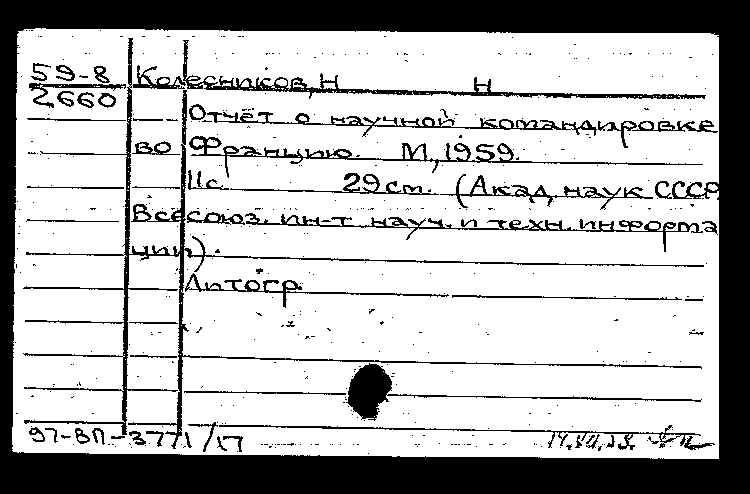 59-8 Колесников, Н Н
2660
Отчёт о научной командировке
во Францию. М., 1959.
11с 29 cm. (Акад. наук СССР
Всесоюз. ин-т науч. и техн. информа
ции).
Литогр.
97-ВП-3771/17